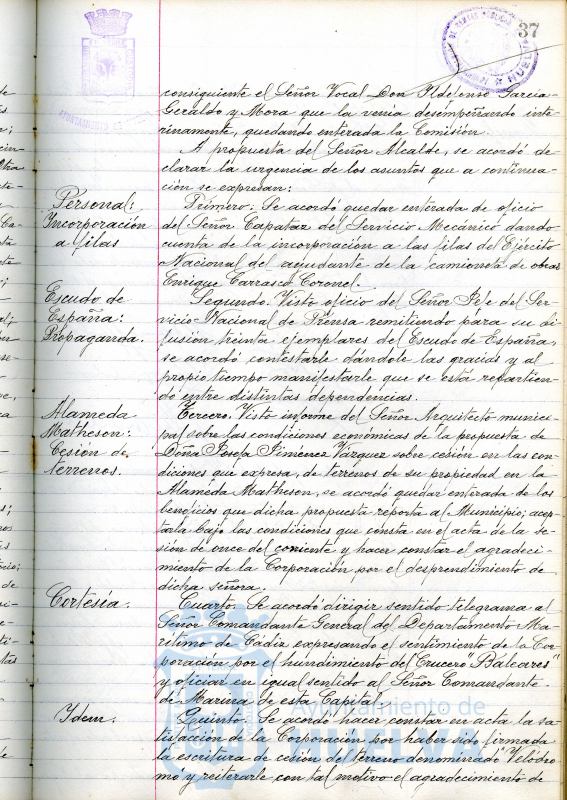 37
consiguiente el Señor Vocal Don Ildefonso Garcia-
Geraldo y Mora que la venia desempeñando inte-
rinamente, quedando enterada la Comisión.
A propuesta del Señor Alcalde, se acordó de-
clarar la urgencia de los asuntos que a continua-
ción se expresan:
Personal:
Incorporación
a filas
Primero: Se acordó quedar enterada de oficio
del Señor Capataz del Servicio Mecánico dando
cuenta de la incorporación a las filas del Ejército
Nacional del ayudante de la camioneta de obras
Enrique Carrasco Coronel.
Escudo de
España:
Propaganda.
Segundo. Visto oficio del Señor Jefe del Ser-
vicio Nacional de Prensa remitiendo para su di-
fusión treinta ejemplares del Escudo de España,
se acordó contestarle dándole las gracias y al
propio tiempo manifestarle que se está repartien-
do entre distintas dependencias.
Alameda
Matheson:
Cesion de
terrenos.
Tercero. Visto informe del Señor Arquitecto munici-
pal sobre las condiciones económicas de la propuesta de
Doña Josefa Jiménez Vázquez sobre cesión en las con-
diciones que expresa, de terrenos de su propiedad en la
Alameda Matheson, se acordó quedar enterada de los
beneficios que dicha propuesta reporta al Municipio; acep-
tarla bajo las condiciones que consta en el acta de la se-
sión de once del corriente y hacer constar el agradeci-
miento de la Corporación por el desprendimiento de
dicha señora.
Cortesía.
Cuarto. Se acordó dirigir sentido telegrama al
Señor Comandante General del Departamento Ma-
ritimo de Cádiz expresando el sentimiento de la Cor-
poración por el hundimiento del Crucero "Baleares"
y oficiar en igual sentido al Señor Comandante
de Marina de esta Capital.
Idem.
Quinto. Se acordó hacer constar en acta la sa-
tisfacción de la Corporación por haber sido firmada
la escritura de cesión del terreno denominado "Velódro-
mo" y reiterarle con tal motivo el agradecimiento de
Ayuntamiento de
HUELVA